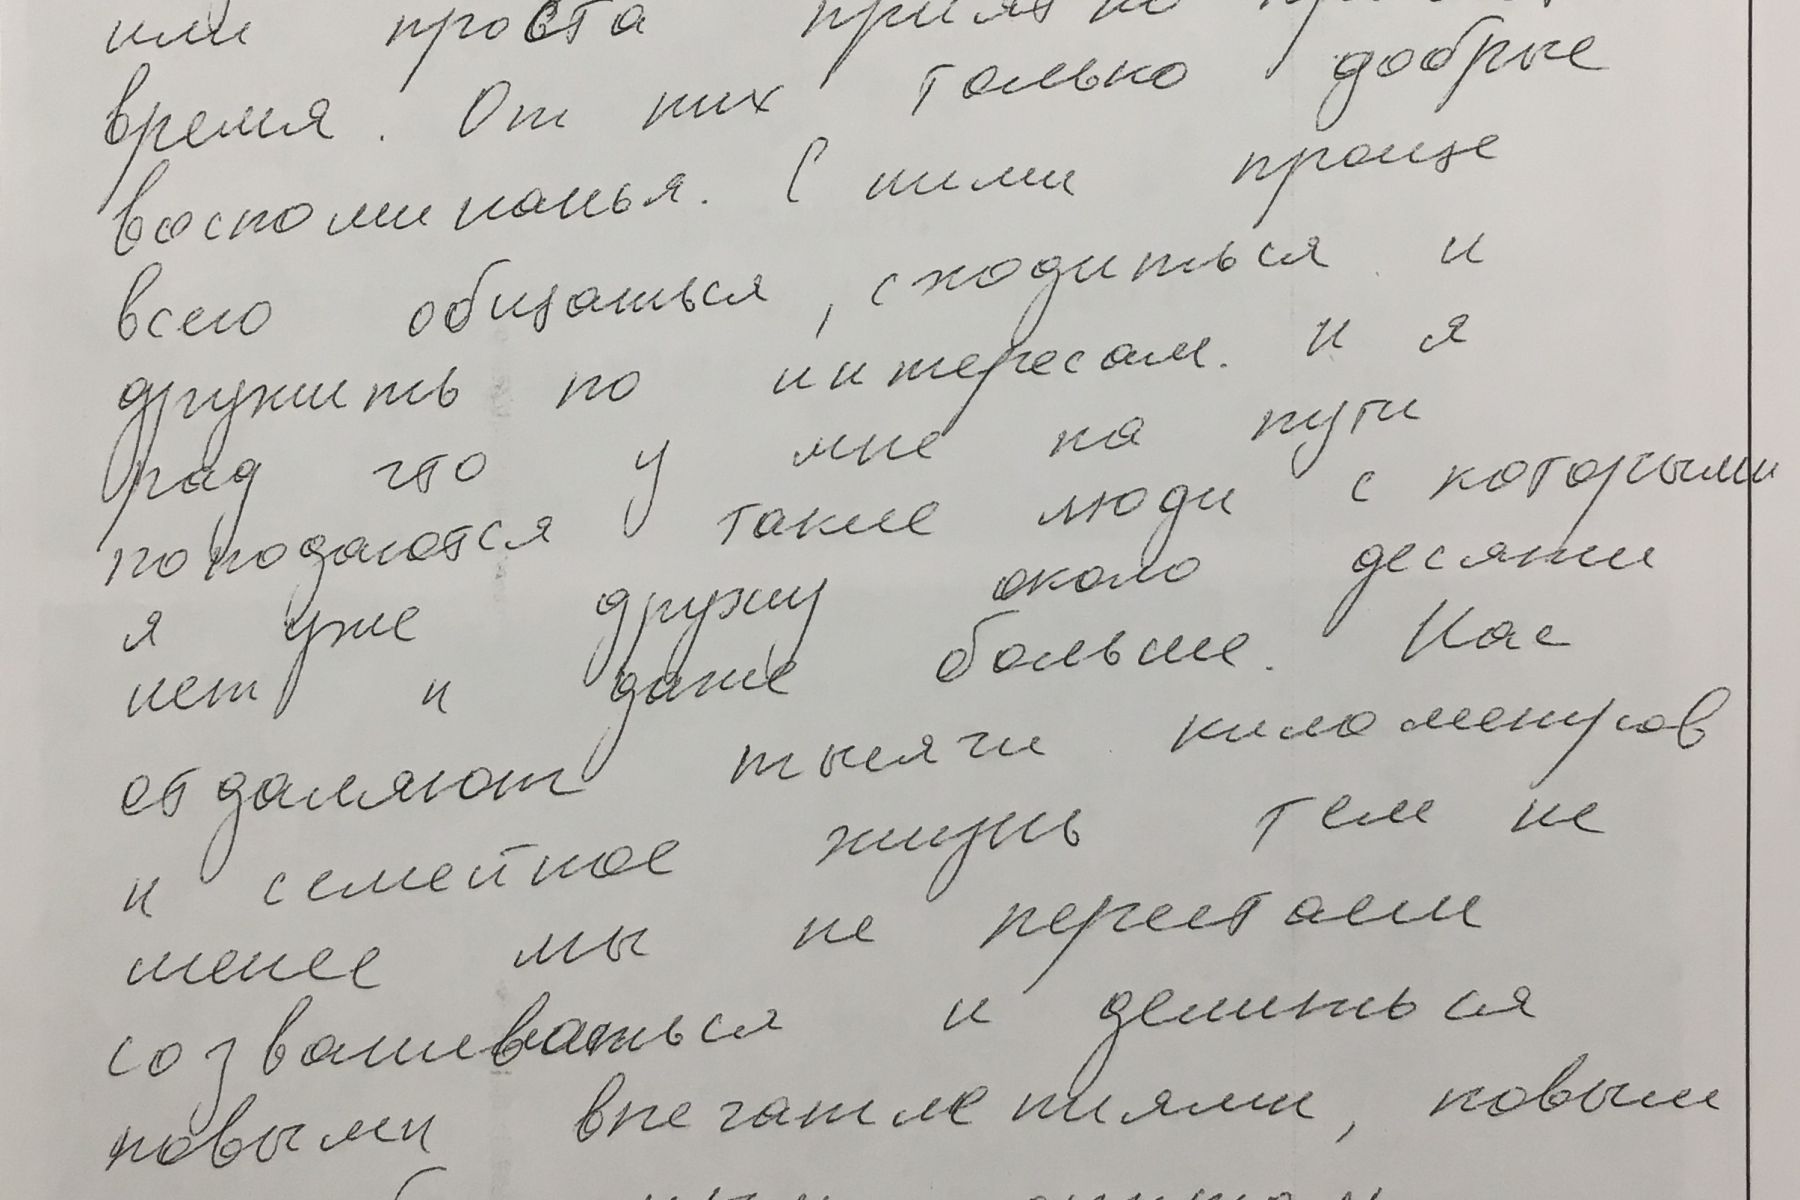 или проста приятно
время. От них только добрые
воспоминанья. С ними проще
всего общаться, сходиться и
дружить по интересам. И я
рад что у мне на пути
поподаются такие люди с которыми
я уже дружу около десяти
лет и даже больше. Нас
отдаляют тысячи километров
и семейное жизнь тем не
менее мы не перестаем
созваниваться и делиться
новыми впечатлениями, новым